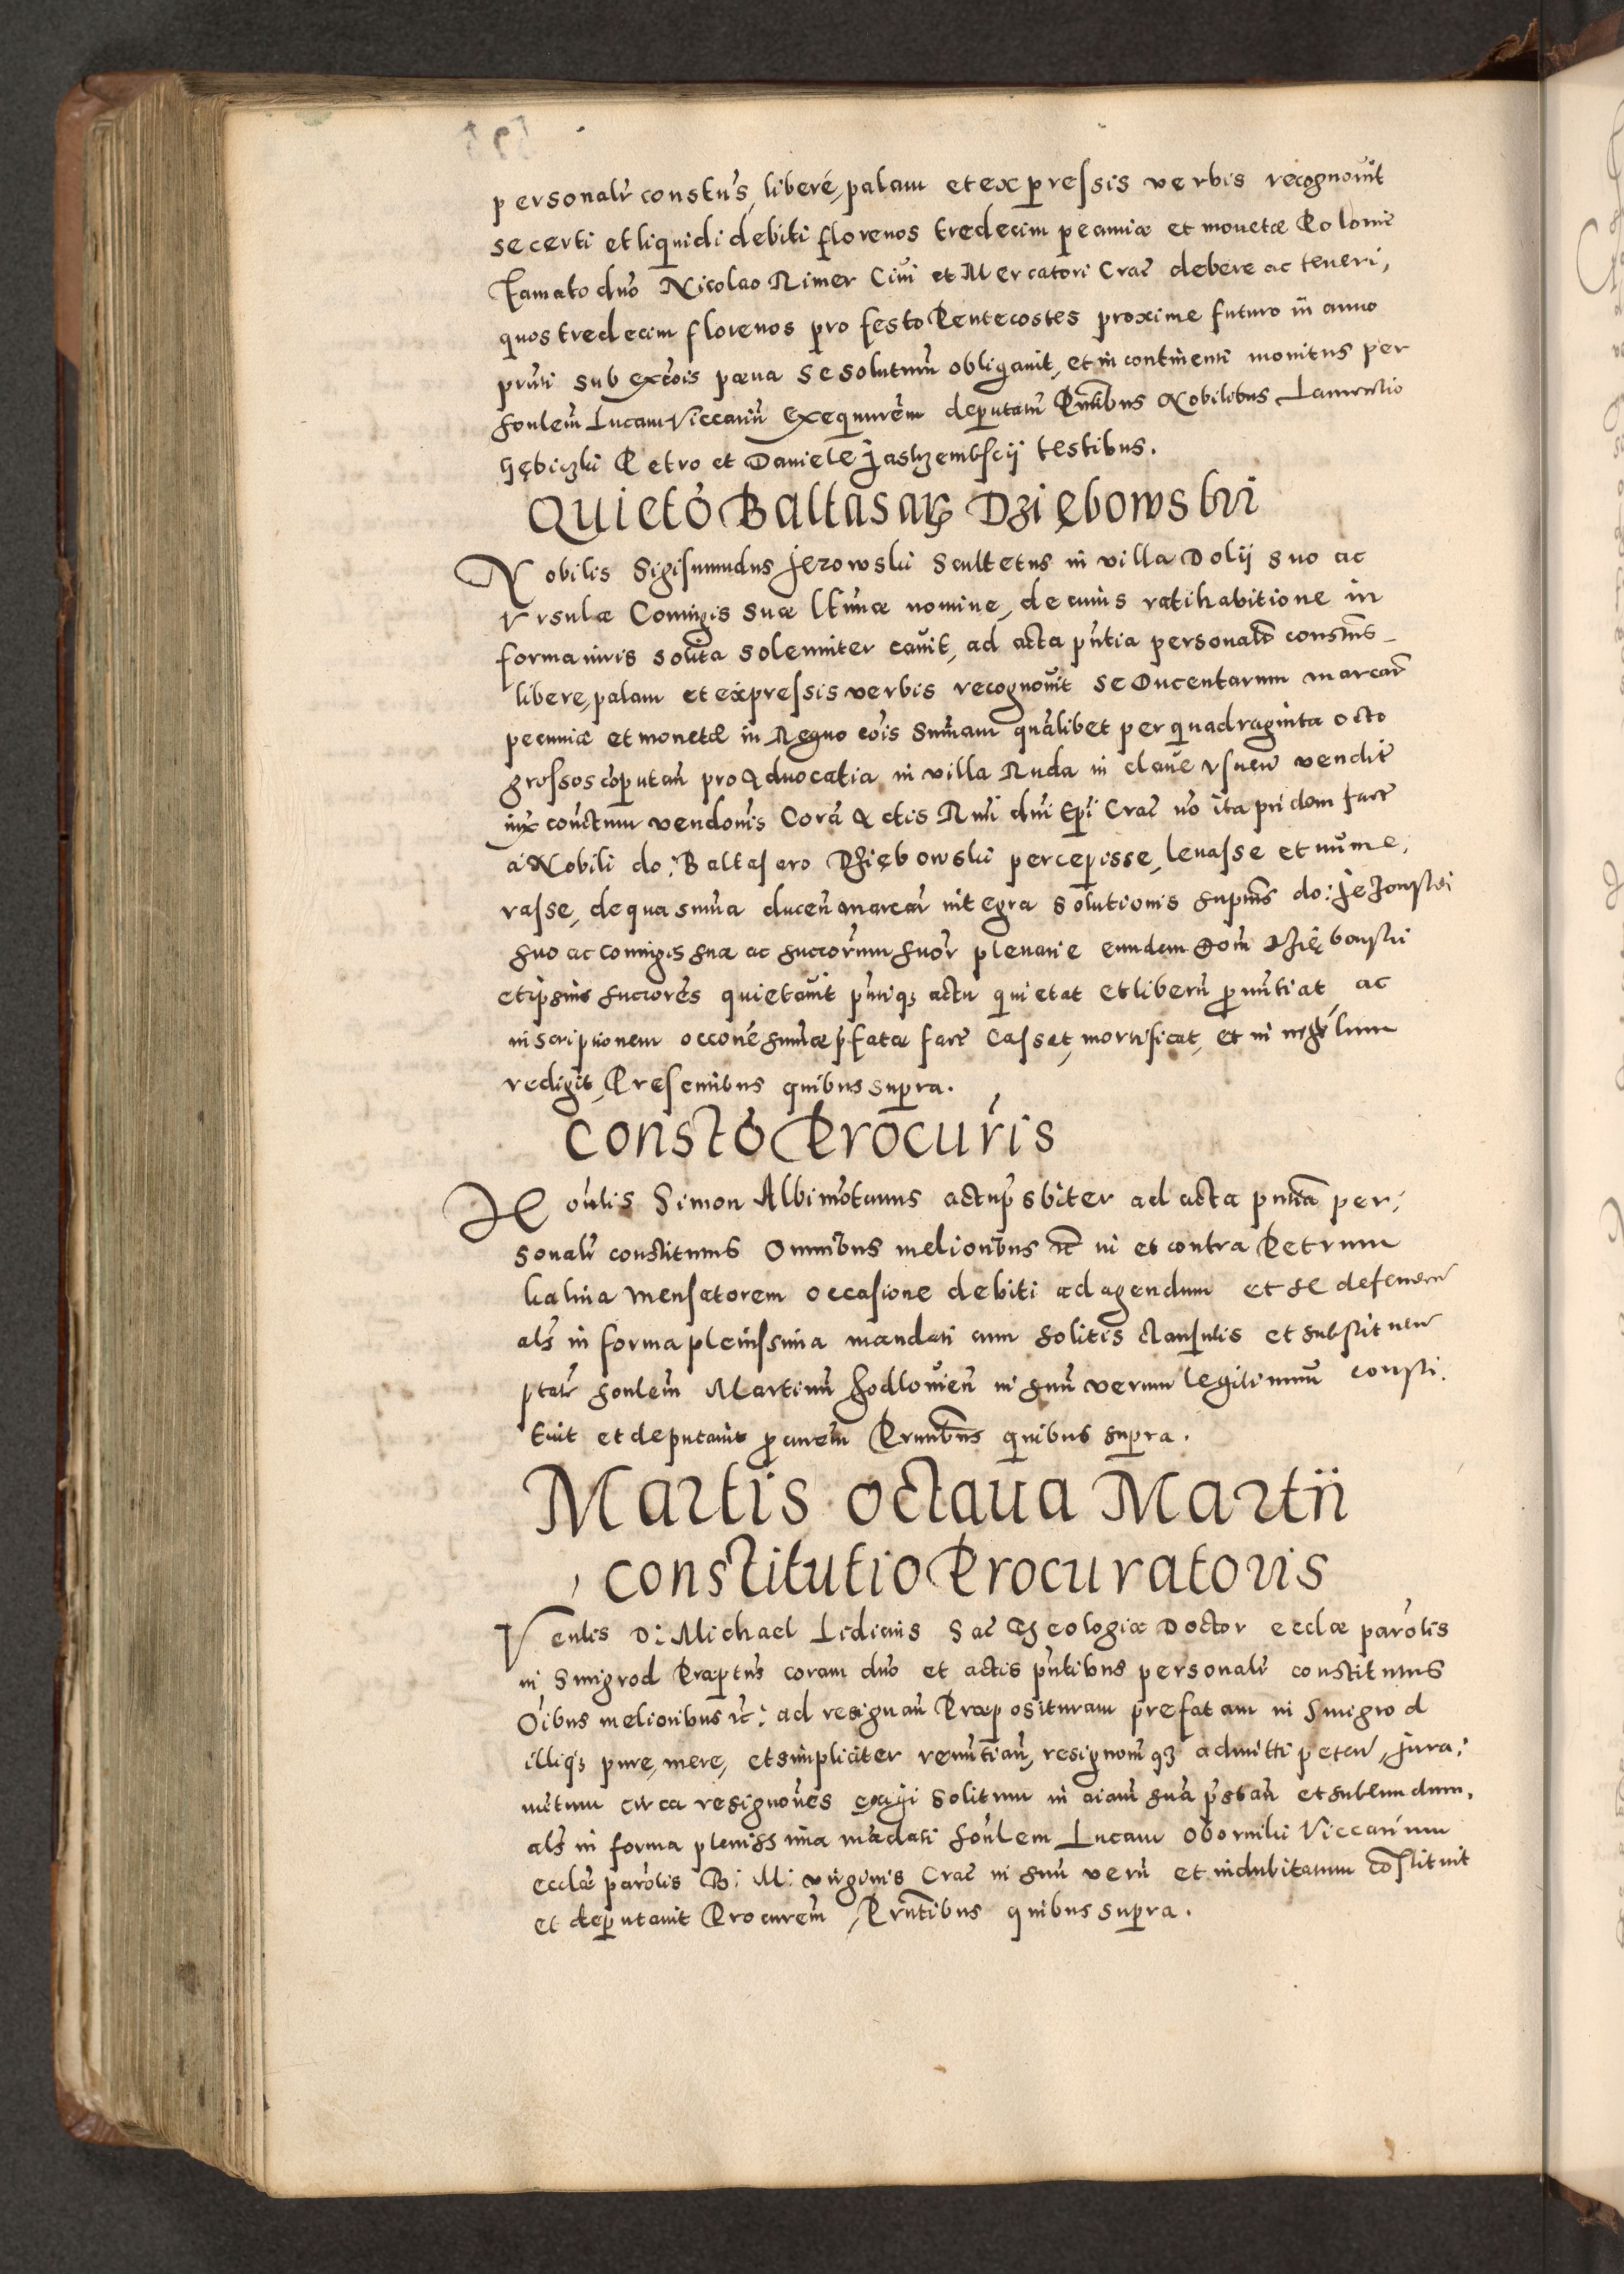 personalr constus, libere, palam et expressis verbis recognovit
se certi et liquidi debiti florenos tredecim pecuniæ et monetæ Polonie
Famato dno Nicolao Rimer Civi et Mercatori Crac debere ac teneri,
quos tredecim florenos pro festo Pentecostes proxime futuro in anno
prnti sub excois pœna se soluturum obligavit, et in continenti monitus per
honlem Lucam Viccarium Exequurem deputatum Prntibus Nobilibus Laurentio
Hębiczki Petro et Daniele Jastrzembscij testibus.
Quieto Baltasar Dziębowskii
Nobilis Sigismundus Jezowski Scultetus in villa Dolij suo ac
Vrsulæ Coniugis suæ ltimæ nomine, de cuius ratihabitione in
forma iuris solita solenniter cavit, ad acta prntia personalr constus
libere, palam et expressis verbis recognovit se Ducentarum marcar
pecuniæ et monetæ in Regno cois Summam qualibet per quadraginta octo
grossos computan pro Advocatia in villa Ruda in clave vendit
iux contctum vendonis Cora Actis Rmi dni Epi Crac no ita pridem fact
a Nobili do: Baltasaro Dziębowski percepisse, levasse et nume,
rasse, de qua suma ducen marcar integra solutionis do: Jezowski
suo ac coniugis suæ ac succorum suor plenarie eundem Dom Dziębowski
et ipsius succores quietavit prntiq actu quietat et liberu pronuntiat, ac
inscriptionem occone sumæ pfatæ fact Cassat, mortificat, et in nihilum
redigit, Presentibus quibus supra.
Consto Procuris
Honlis Simon Albimotanus actu psbiter ad acta prntia per,
sonalr constitutus Omnibus melioribus etc in et contra Petrum
kalina mensatorem occasione debiti ad agendum et se defenden
als in forma plenissima mandati cum solitis clausulis et substituen
ptate honlem Martinu Jodlowien in suu verum legitimum consti.
tuit et deputavit procurem Prntibus quibus supra.
Martis octaua Martii
constitutio Procuratoris
Venlis D: Michael Lidicius Sac Theologiæ Doctor ecclæ parolis
in Smigrod Præptus coram dno et actis prntibus personalr constitutus
Oibus melioribus etc: ad resignan Præposituram prefatam in Smigrod
illiq pure, mere, et simpliciter renuntian, resignonem q admitti peten, Jura,
mentum circa resignones exigi solitum in aiam sua pstan et subeundum,
als in forma plenissima madati honlem Lucam Obornicki Viccarium
ecclæ parolis B: M: virginis Crac in suu veru et indubitatum constituit
et deputavit Procurem, Prntibus quibus supra.